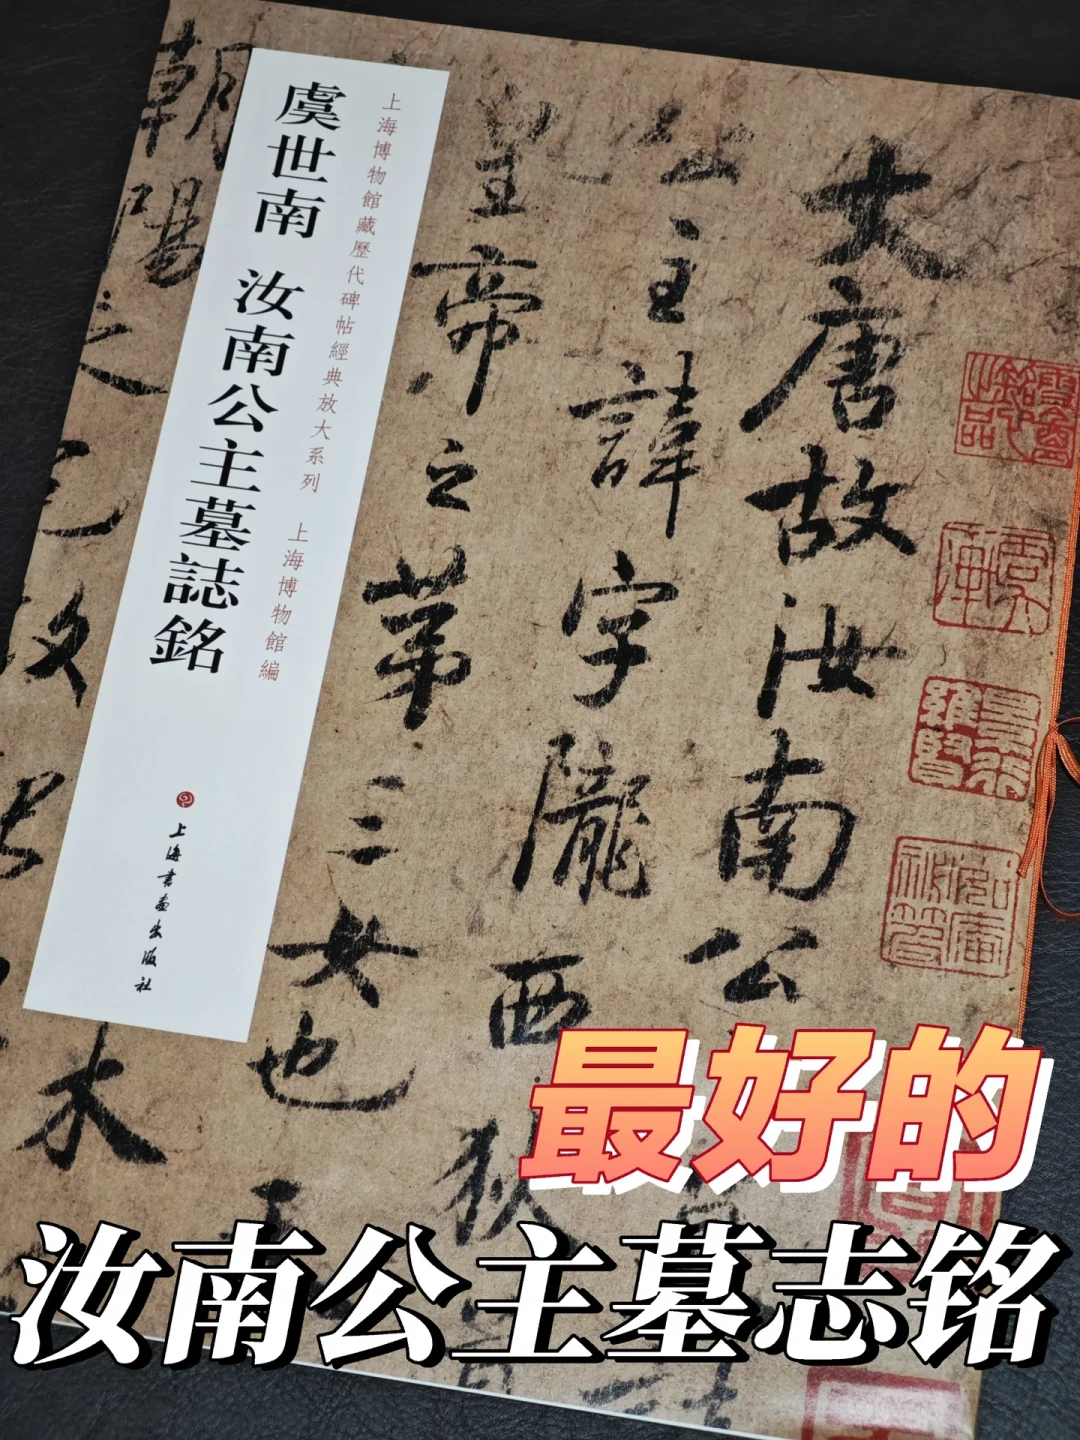 虞世南 汝南公主墓誌銘
上海博物館藏歷代碑帖經典放大系列 上海博物館編
上海書畫出版社
大唐故汝南公
公主諱字隴西狄
皇帝之第三女也
朝陽之
木
最好的
汝南公主墓志铭